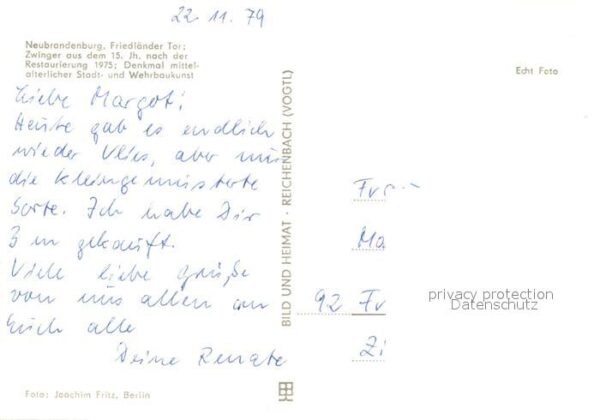 22.11.79
Neubrandenburg, Friedländer Tor;
Zwinger aus dem 15. Jh. nach der
Restaurierung 1975; Denkmal mittel-
alterlicher Stadt- und Wehrbaukunst
Echt Foto
Liebe Margot!
Heute gab es endlich
wieder Vlies, aber nur
die kleingemusterte
Sorte. Ich habe Dir
3 m gekauft.
Viele liebe Grüße
von uns allen an
Euch alle
Deine Renate
BILD UND HEIMAT · REICHENBACH (VOGTL)
Fr
Ma
92 Fr
Zi
privacy protection
Datenschutz
Foto: Joachim Fritz, Berlin